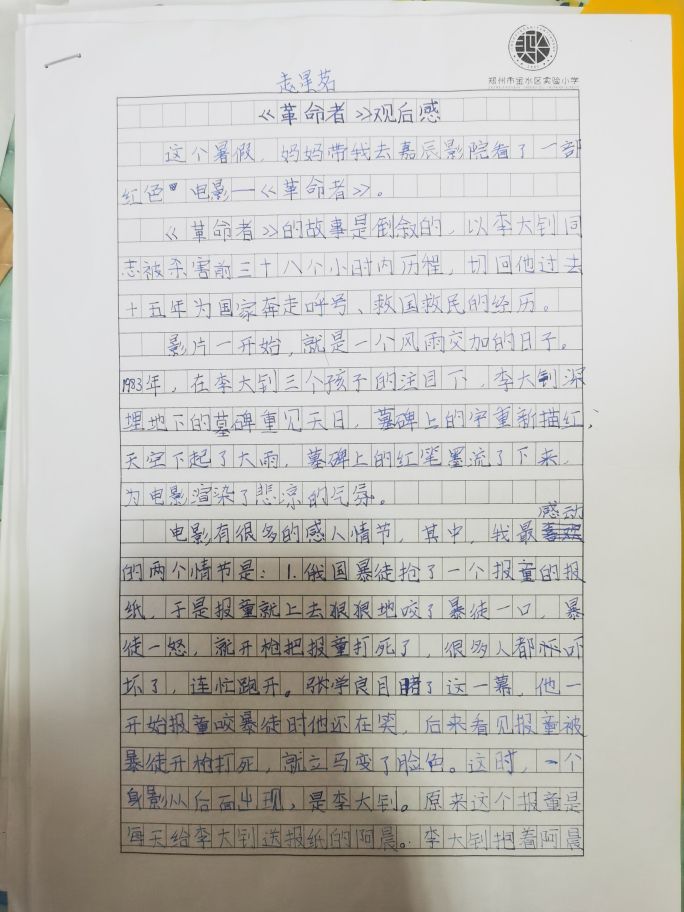 郑州市金水区实验小学
赵星茗
《革命者》观后感
这个暑假，妈妈带我去嘉辰影院看了一部
红色电影—《革命者》。
《革命者》的故事是倒叙的，以李大钊同
志被杀害前三十八个小时内历程，切回他过去
十五年为国家奔走呼号、救国救民的经历。
影片一开始，就是一个风雨交加的日子。
1983年，在李大钊三个孩子的注目下，李大钊深
埋地下的墓碑重见天日，墓碑上的字重新描红，
天空下起了大雨，墓碑上的红笔墨流了下来，
为电影渲染了悲凉的气氛。
电影有很多的感人情节，其中，我最感动
的两个情节是：1.俄国暴徒抢了一个报童的报
纸，于是报童就上去狠狠地咬了暴徒一口，暴
徒一怒，就开枪把报童打死了，很多人都吓
坏了，连忙跑开。张学良目睹了这一幕，他一
开始报童咬暴徒时他还在笑，后来看见报童被
暴徒开枪打死，就立马变了脸色。这时，一个
身影从后面出现，是李大钊。原来这个报童是
每天给李大钊送报纸的阿晨。李大钊抱着阿晨